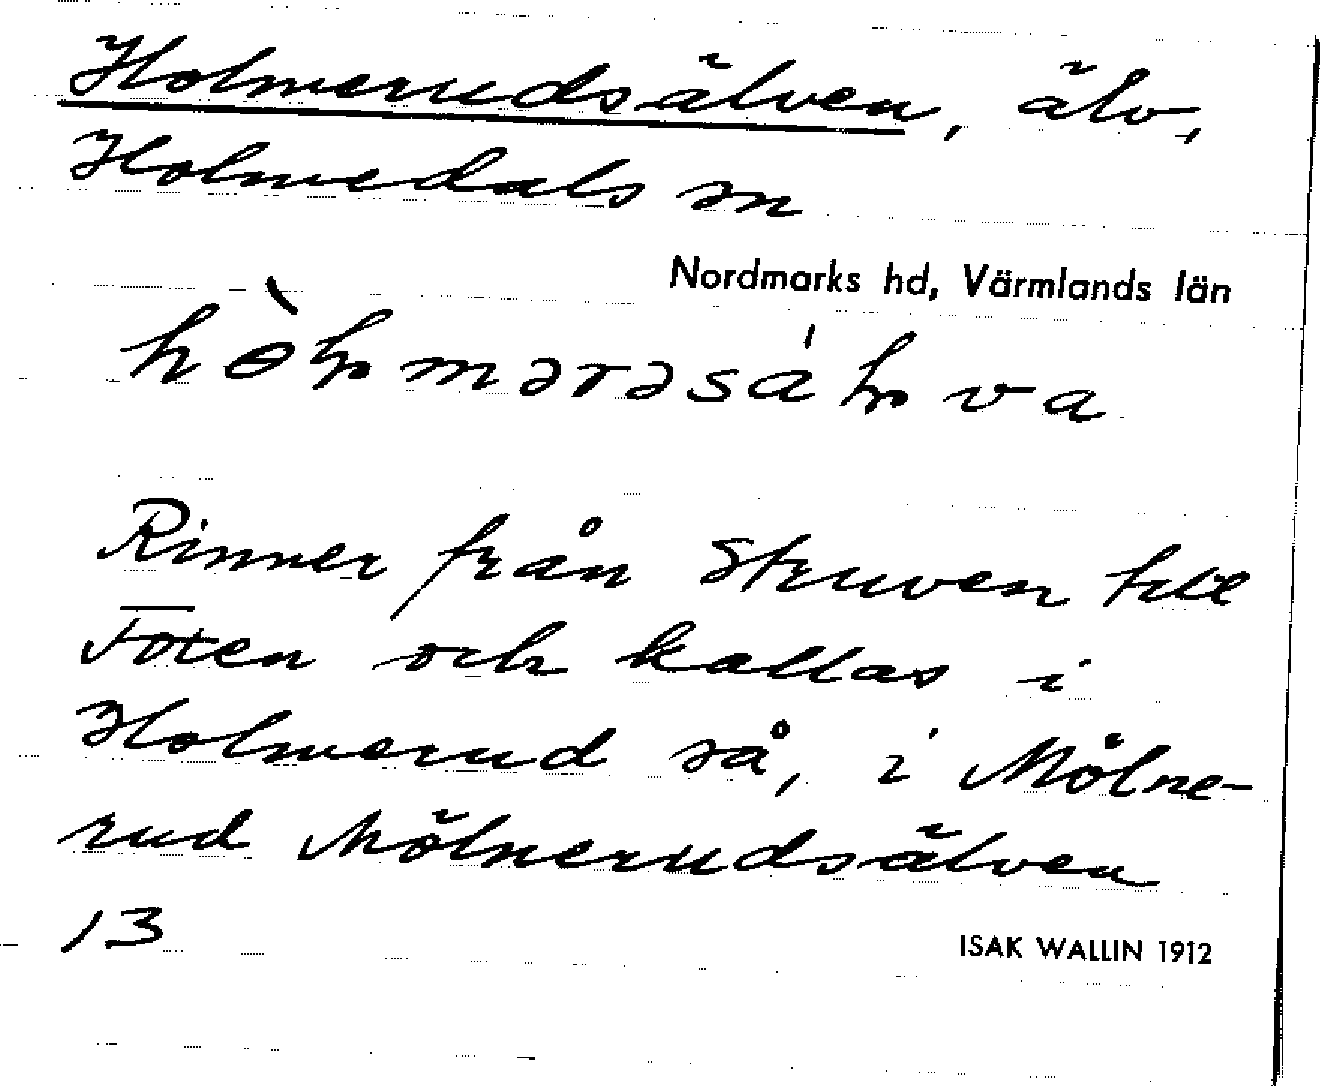 Holmerudsälven, älv,
Holmedals sn
Nordmarks hd, Värmlands län
Rinner från Struven till
Foxen och kallas i
Holmerud så, i Mölne-
rud Mölnerudsälven
13
ISAK WALLIN 1912